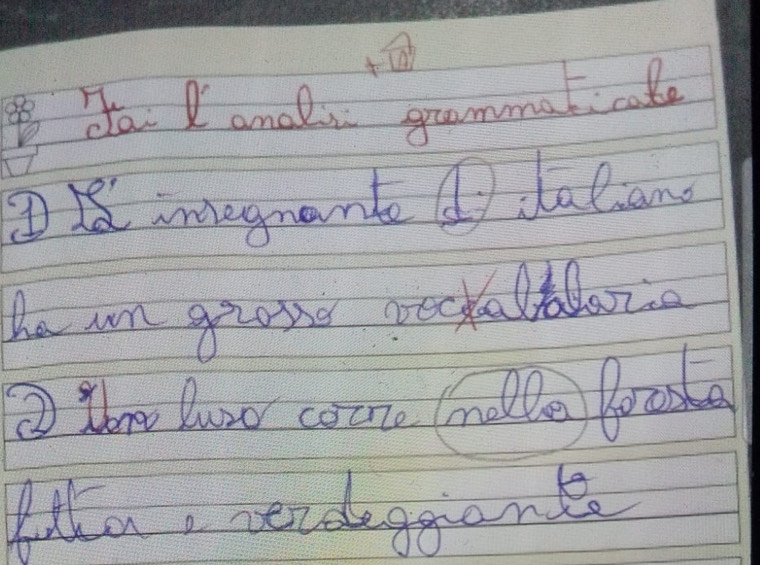 Fai l'analisi grammaticale
1) L'insegnante di italiano
ha un grosso vocabolario
2) Un lupo corre nella foresta
fitta e verdeggiante